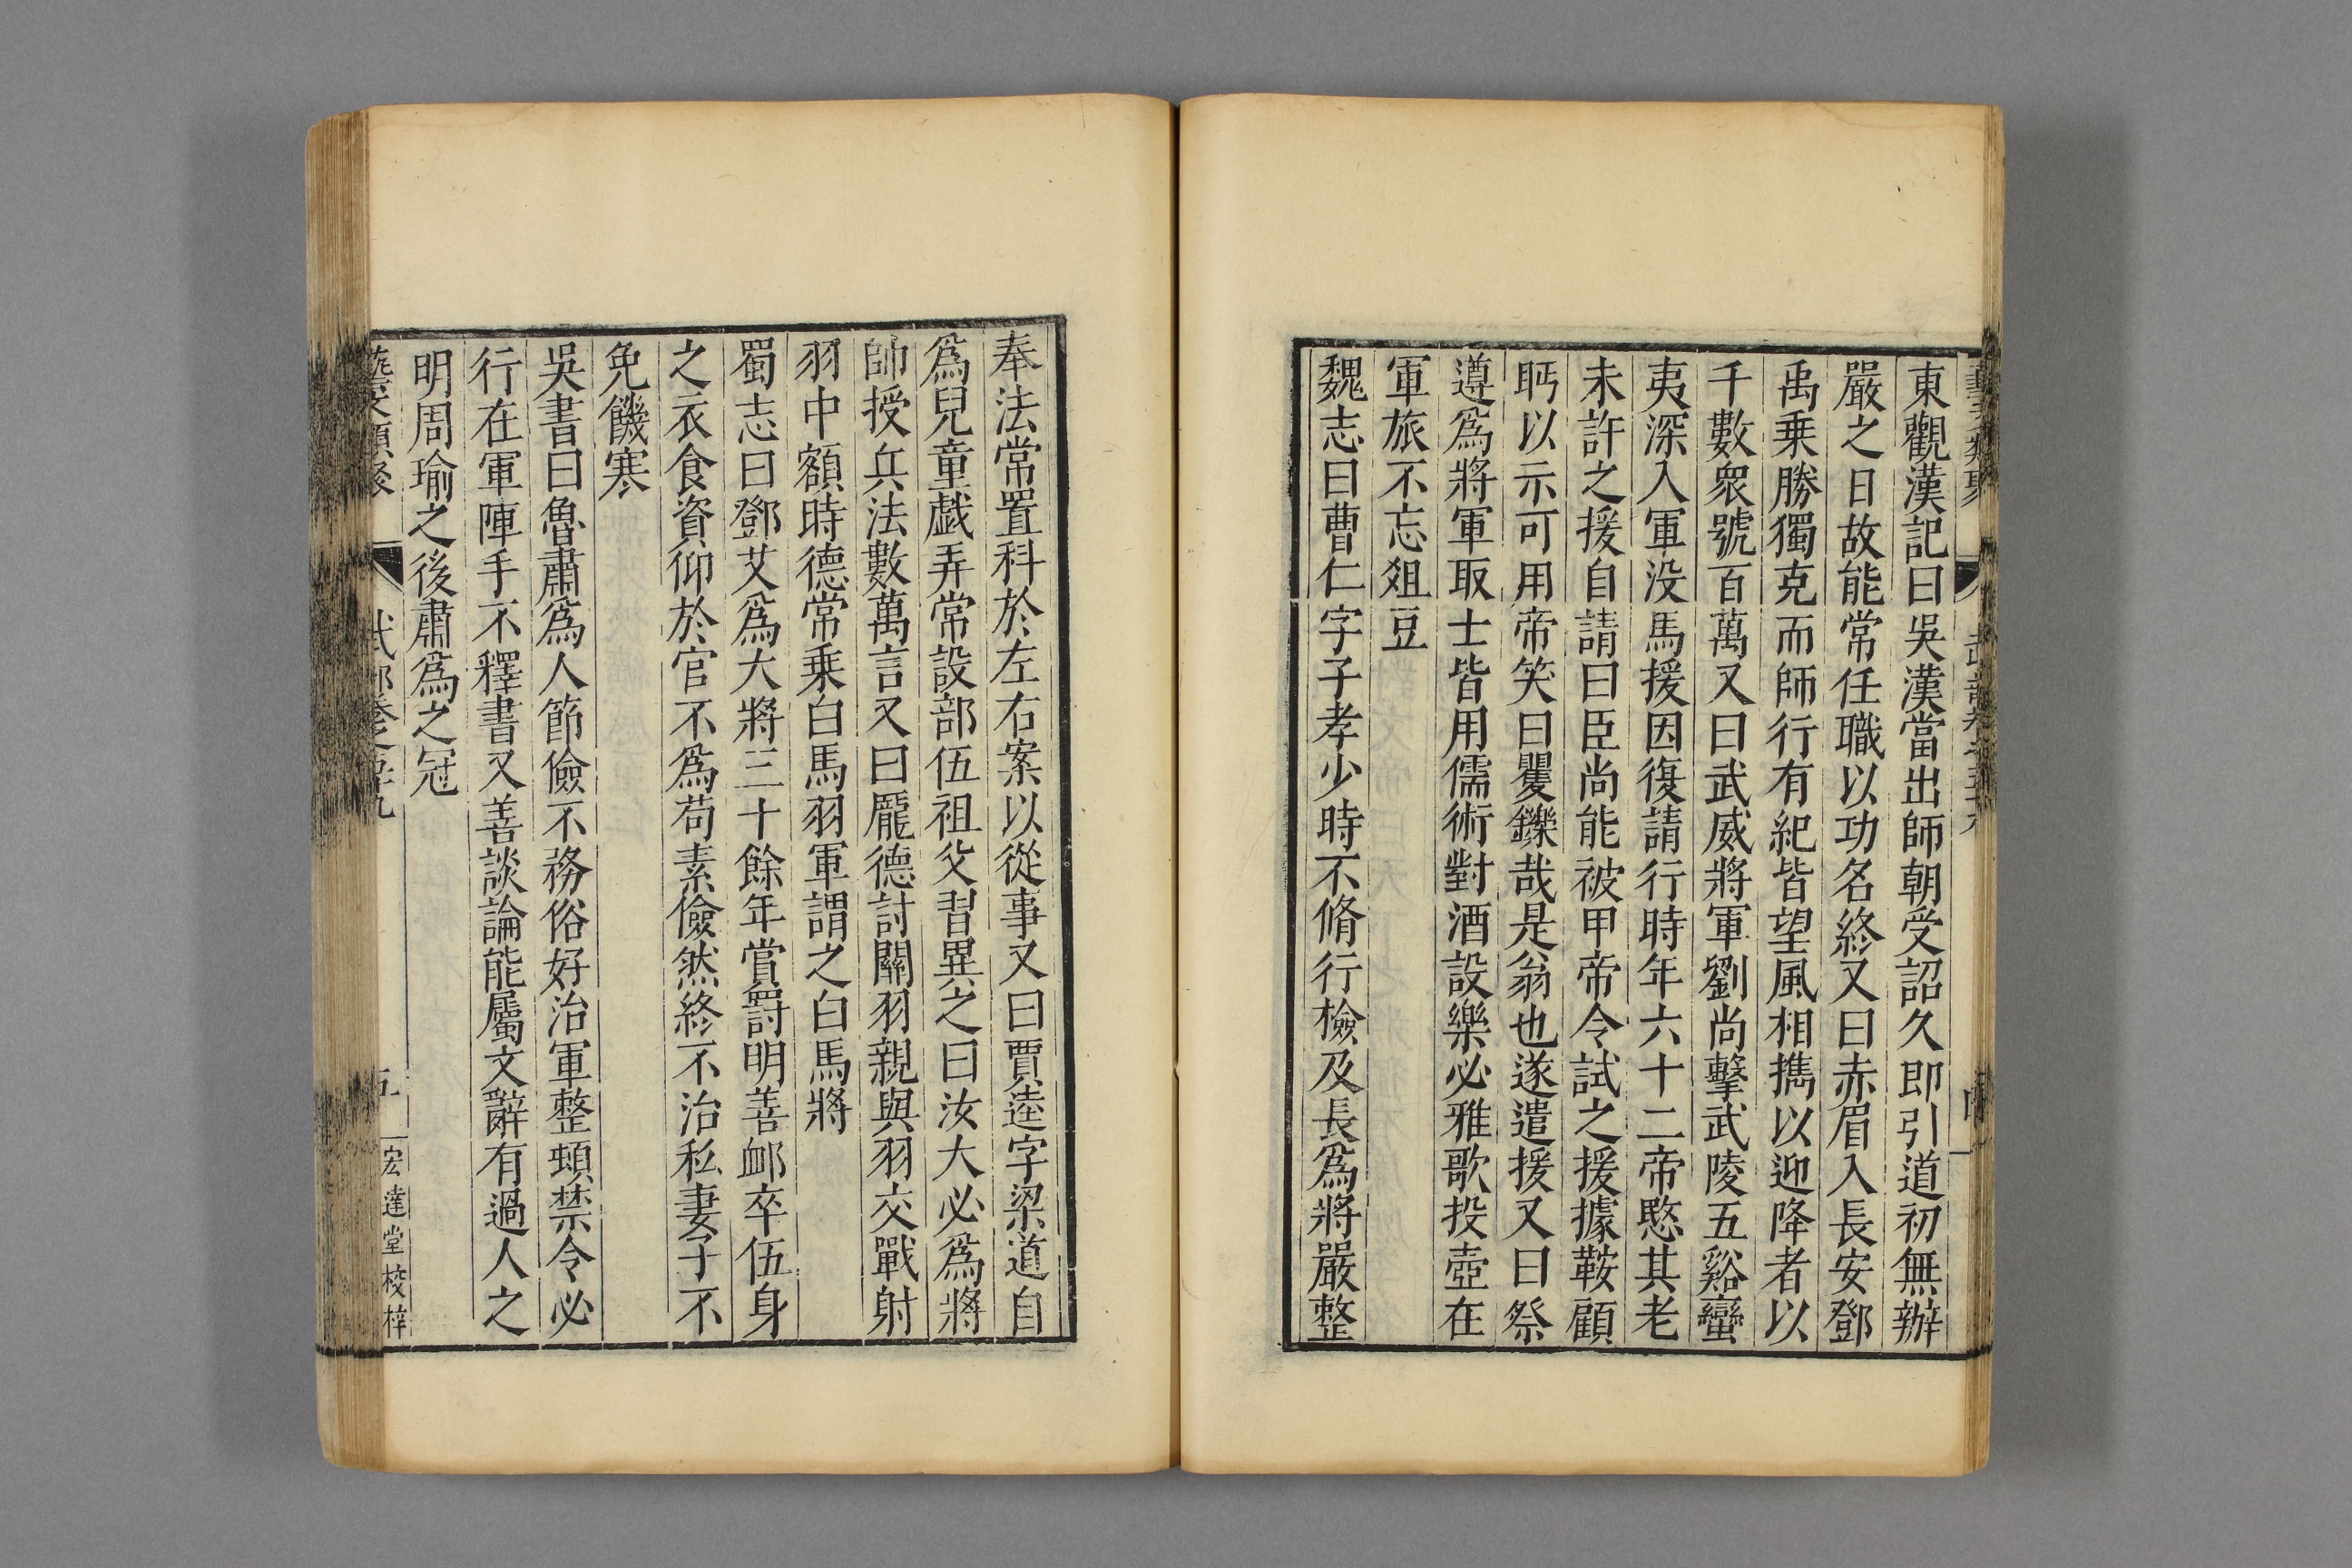 東觀漢記曰吳漢當出師朝受詔久即引道初無辦
嚴之日故能常任職以功名終又曰赤眉入長安鄧
禹乗勝獨克而師行有紀皆望風相擕以迎降者以
千數衆號百萬又曰武威將軍劉尚擊武陵五谿蠻
夷深入軍没馬援因復請行時年六十二帝愍其老
未許之援自請曰臣尚能被甲帝令試之援據鞍顧
眄以示可用帝笑曰矍鑠哉是翁也遂遣援又曰祭
遵爲將軍取士皆用儒術對酒設樂必雅歌投壺在
軍旅不忘爼豆
魏志曰曹仁字子孝少時不脩行檢及長爲將嚴整
奉法常置科於左右案以從事又曰賈逵字梁道自
爲兒童戯弄常設部伍祖父習異之曰汝大必爲將
帥授兵法數萬言又曰龎德討關羽親與羽交戰射
羽中額時德常乗白馬羽軍謂之白馬將
蜀志曰鄧艾爲大將三十餘年賞罰明善衈卒伍身
之衣食資仰於官不爲苟素儉然終不治私妻子不
免饑寒
吳書曰魯肅爲人節儉不務俗好治軍整頓禁令必
行在軍陣手不釋書又善談論能屬文辭有過人之
明周瑜之後肅爲之冠
五
宏達堂校梓